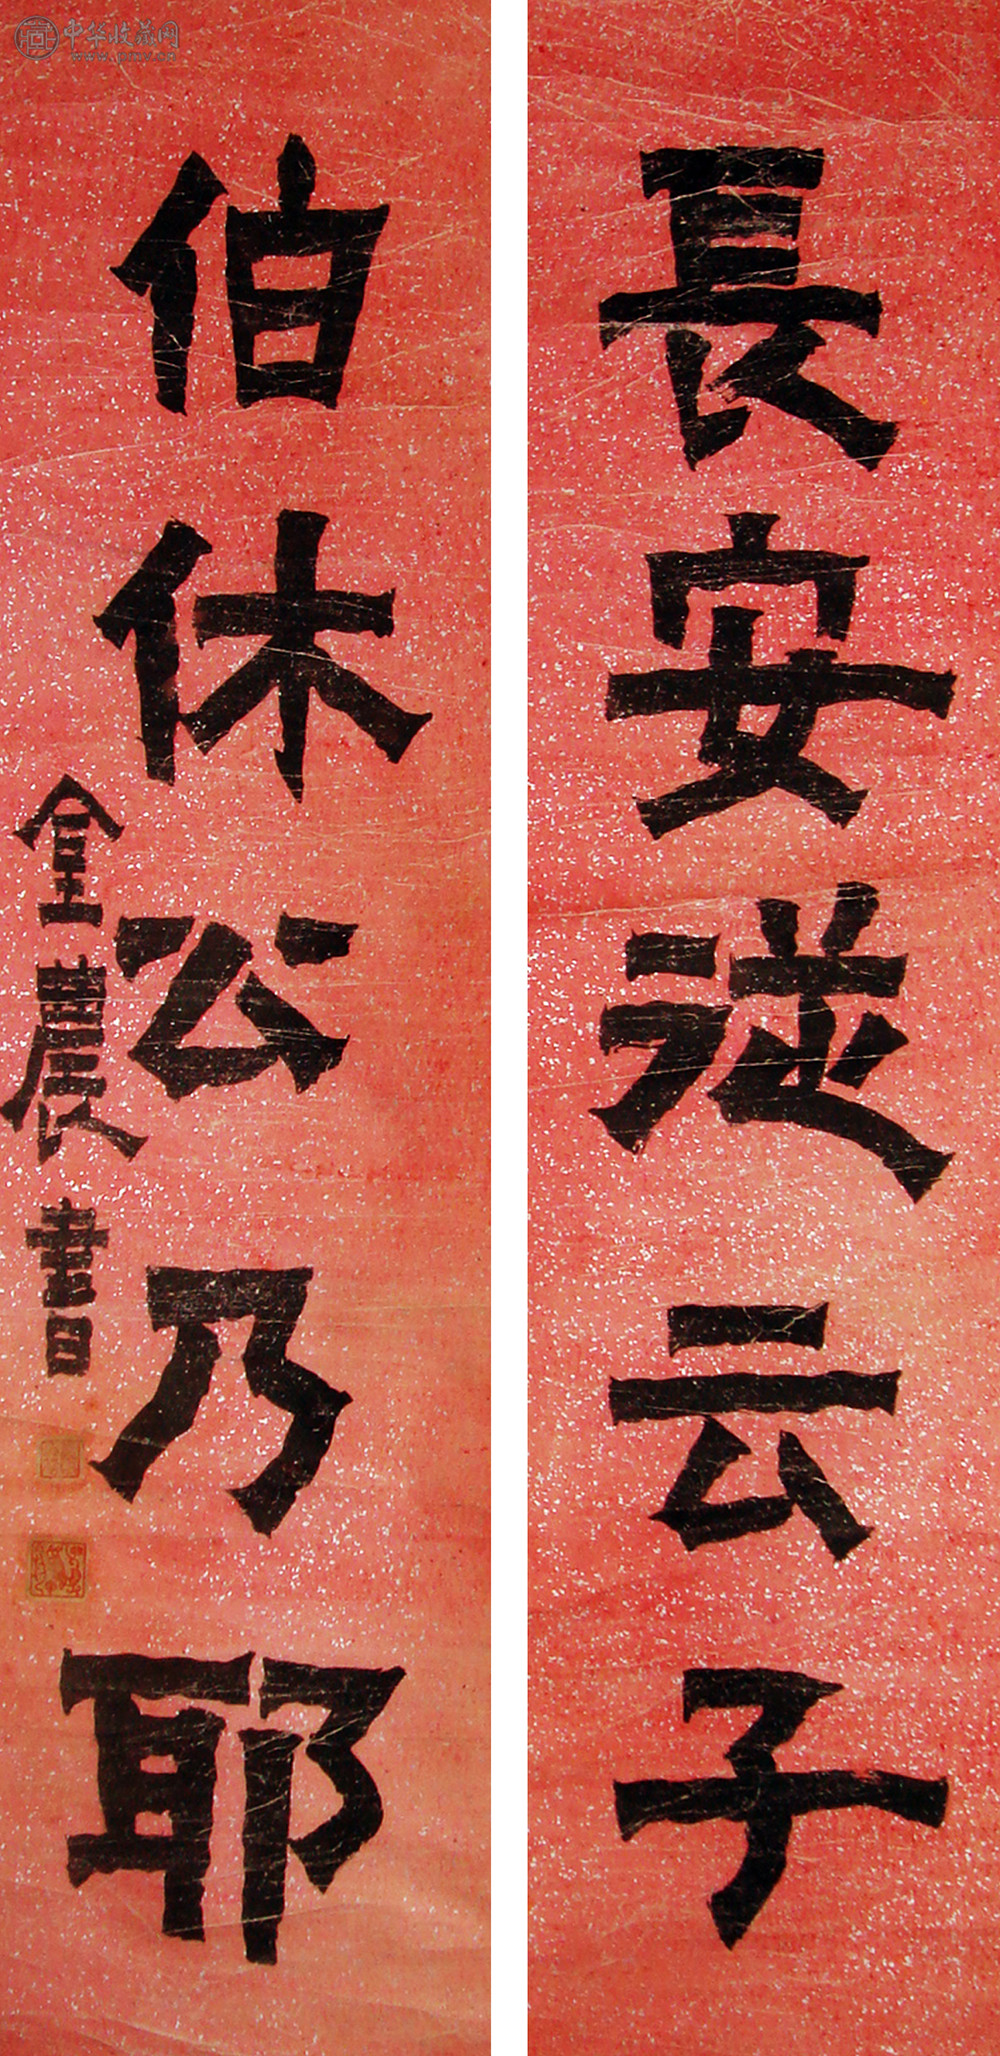 中华收藏网
長安従云子
伯休公乃耶
金農書